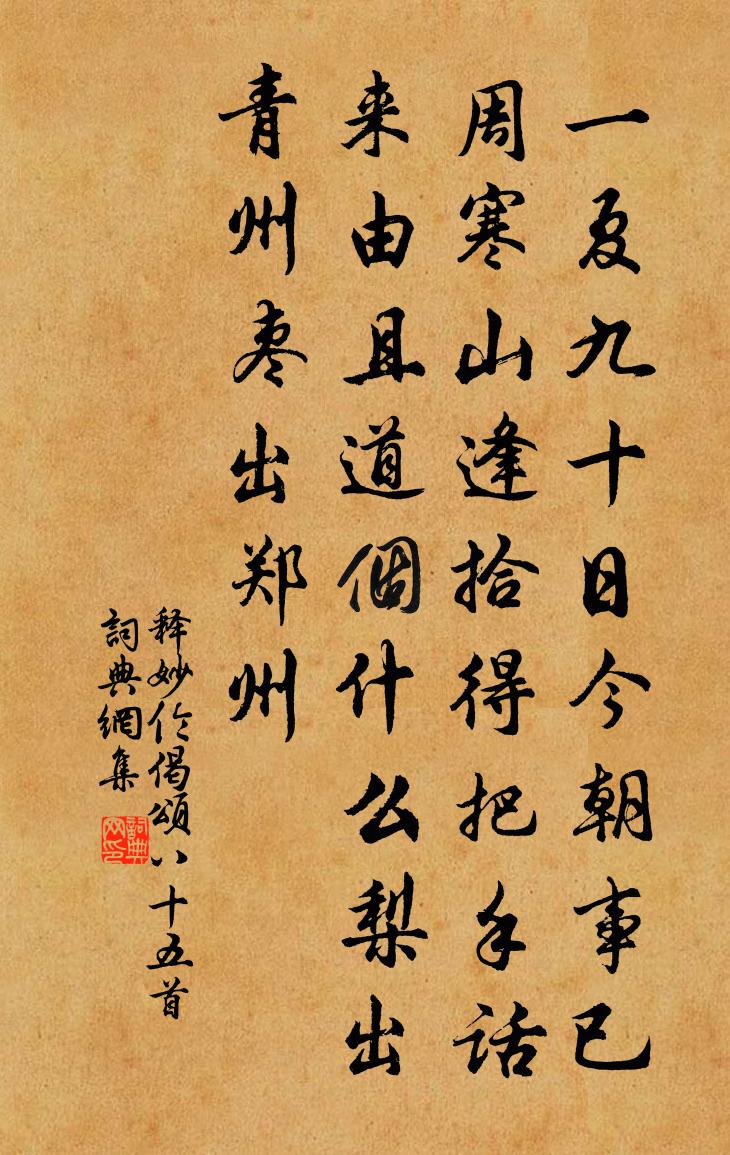 一夏九十日今朝事已
周寒山逢拾得把手话
来由且道個什么梨出
青州枣出郑州
释妙伦偈頌八十五首
詞典網集
詞典网印